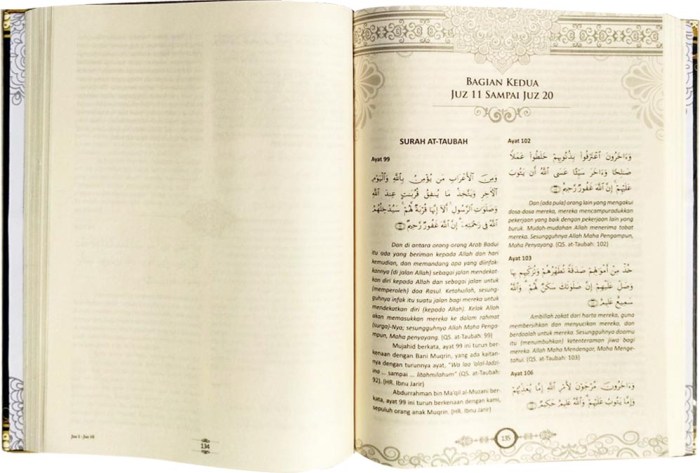 BAGIAN KEDUA
JUZ 11 SAMPAI JUZ 20
SURAH AT-TAUBAH
Ayat 99
وَمِنَ ٱلْأَعْرَابِ مَن يُؤْمِنُ بِٱللَّهِ وَٱلْيَوْمِ
ٱلْآخِرِ وَيَتَّخِذُ مَا يُنفِقُ قُرُبَـٰتٍ عِندَ ٱللَّهِ
وَصَلَوَٰتِ ٱلرَّسُولِ ۚ أَلَآ إِنَّهَا قُرْبَةٌ لَّهُمْ ۚ سَيُدْخِلُهُمُ
ٱللَّهُ فِى رَحْمَتِهِۦٓ ۗ إِنَّ ٱللَّهَ غَفُورٌ رَّحِيمٌ
Dan di antara orang-orang Arab Badui
itu ada yang beriman kepada Allah dan hari
kemudian, dan memandang apa yang diinfak-
kannya (di jalan Allah) sebagai jalan mendekat-
kan diri kepada Allah dan sebagai jalan untuk
(memperoleh) doa Rasul. Ketahuilah, sesung-
guhnya infak itu suatu jalan bagi mereka untuk
mendekatkan diri (kepada Allah). Kelak Allah
akan memasukkan mereka ke dalam rahmat
(surga)-Nya; sesungguhnya Allah Maha Penga-
mpun, Maha penyayang. (QS. at-Taubah: 99)
Mujahid berkata, ayat 99 ini turun ber-
kenaan dengan Bani Muqrin, yang ada kaitan-
nya dengan turunnya ayat, "Wa laa 'alal-ladzi-
ina ... sampai ... litahmilahum" (QS. at-Taubah:
92). (HR. Ibnu Jarir)
Abdurrahman bin Ma'qil al-Muzani ber-
kata, ayat 99 ini turun berkenaan dengan kami,
sepuluh orang anak Muqrin. (HR. Ibnu Jarir)
Ayat 102
وَءَاخَرُونَ ٱعْتَرَفُوا۟ بِذُنُوبِهِمْ خَلَطُوا۟ عَمَلًا
صَـٰلِحًا وَءَاخَرَ سَيِّئًا عَسَى ٱللَّهُ أَن يَتُوبَ
عَلَيْهِمْ ۚ إِنَّ ٱللَّهَ غَفُورٌ رَّحِيمٌ
Dan (ada pula) orang lain yang mengakui
dosa-dosa mereka, mereka mencampuradukkan
pekerjaan yang baik dengan pekerjaan lain yang
buruk. Mudah-mudahan Allah menerima tobat
mereka. Sesungguhnya Allah Maha Pengampun,
Maha Penyayang. (QS. at-Taubah: 102)
Ayat 103
خُذْ مِنْ أَمْوَٰلِهِمْ صَدَقَةً تُطَهِّرُهُمْ وَتُزَكِّيهِم بِهَا
وَصَلِّ عَلَيْهِمْ ۖ إِنَّ صَلَوٰتَكَ سَكَنٌ لَّهُمْ ۗ وَٱللَّهُ
سَمِيعٌ عَلِيمٌ
Ambillah zakat dari harta mereka, guna
membersihkan dan menyucikan mereka, dan
berdoalah untuk mereka. Sesungguhnya doamu
itu (menumbuhkan) ketenteraman jiwa bagi
mereka. Allah Maha Mendengar, Maha Menge-
tahui. (QS. at-Taubah: 103)
Ayat 106
وَءَاخَرُونَ مُرْجَوْنَ لِأَمْرِ ٱللَّهِ إِمَّا يُعَذِّبُهُمْ
وَإِمَّا يَتُوبُ عَلَيْهِمْ ۗ وَٱللَّهُ عَلِيمٌ حَكِيمٌ
Juz 1 - Juz 10
134
135